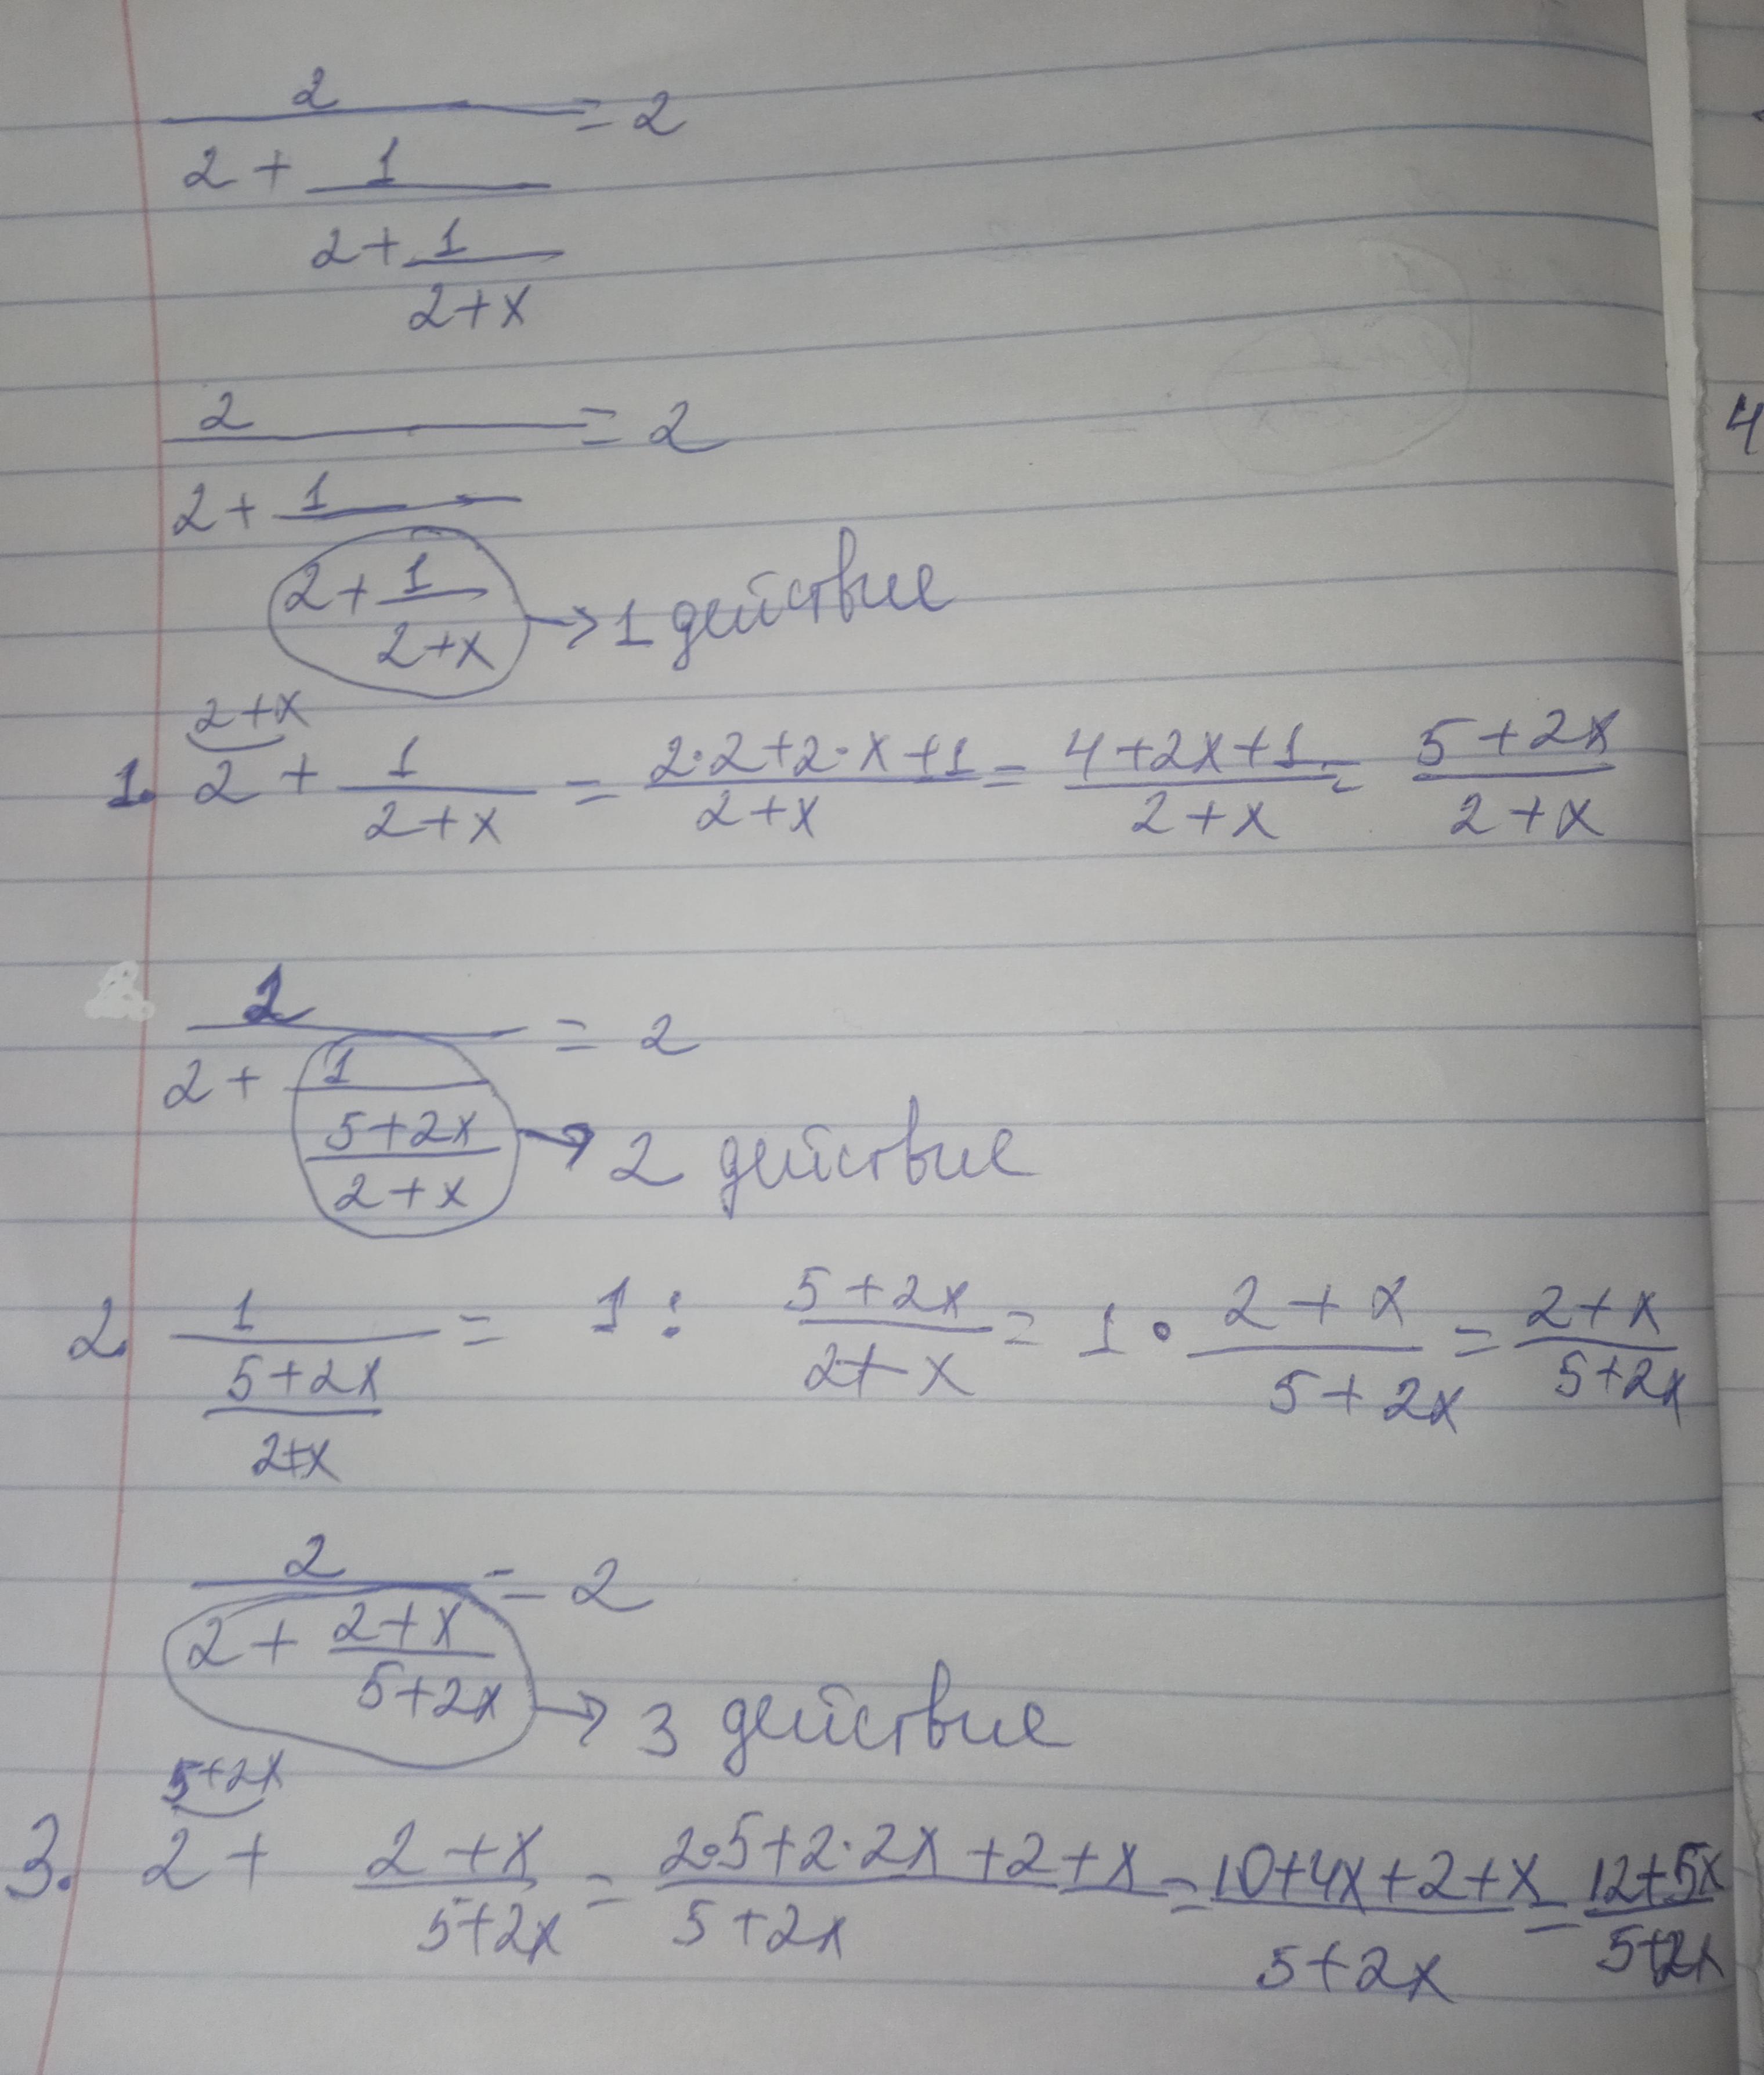 2
───── = 2
2 + 1
─────
2 + 1
─────
2 + x
2
───── = 2
2 + 1
─────
2 + 1
─────
2 + x
→ 1 действие
2+x
1. 2 + 1/(2+x) = (2·2+2·x+1)/(2+x) = (4+2x+1)/(2+x) = (5+2x)/(2+x)
2
───── = 2
2 + 1
─────
5+2x
─────
2+x
→ 2 действие
2. 1/((5+2x)/(2+x)) = 1 : (5+2x)/(2+x) = 1 · (2+x)/(5+2x) = (2+x)/(5+2x)
2
───── = 2
2 + (2+x)/(5+2x)
→ 3 действие
5+2x
3. 2 + (2+x)/(5+2x) = (2·5+2·2x+2+x)/(5+2x) = (10+4x+2+x)/(5+2x) = (12+5x)/(5+2x)
4